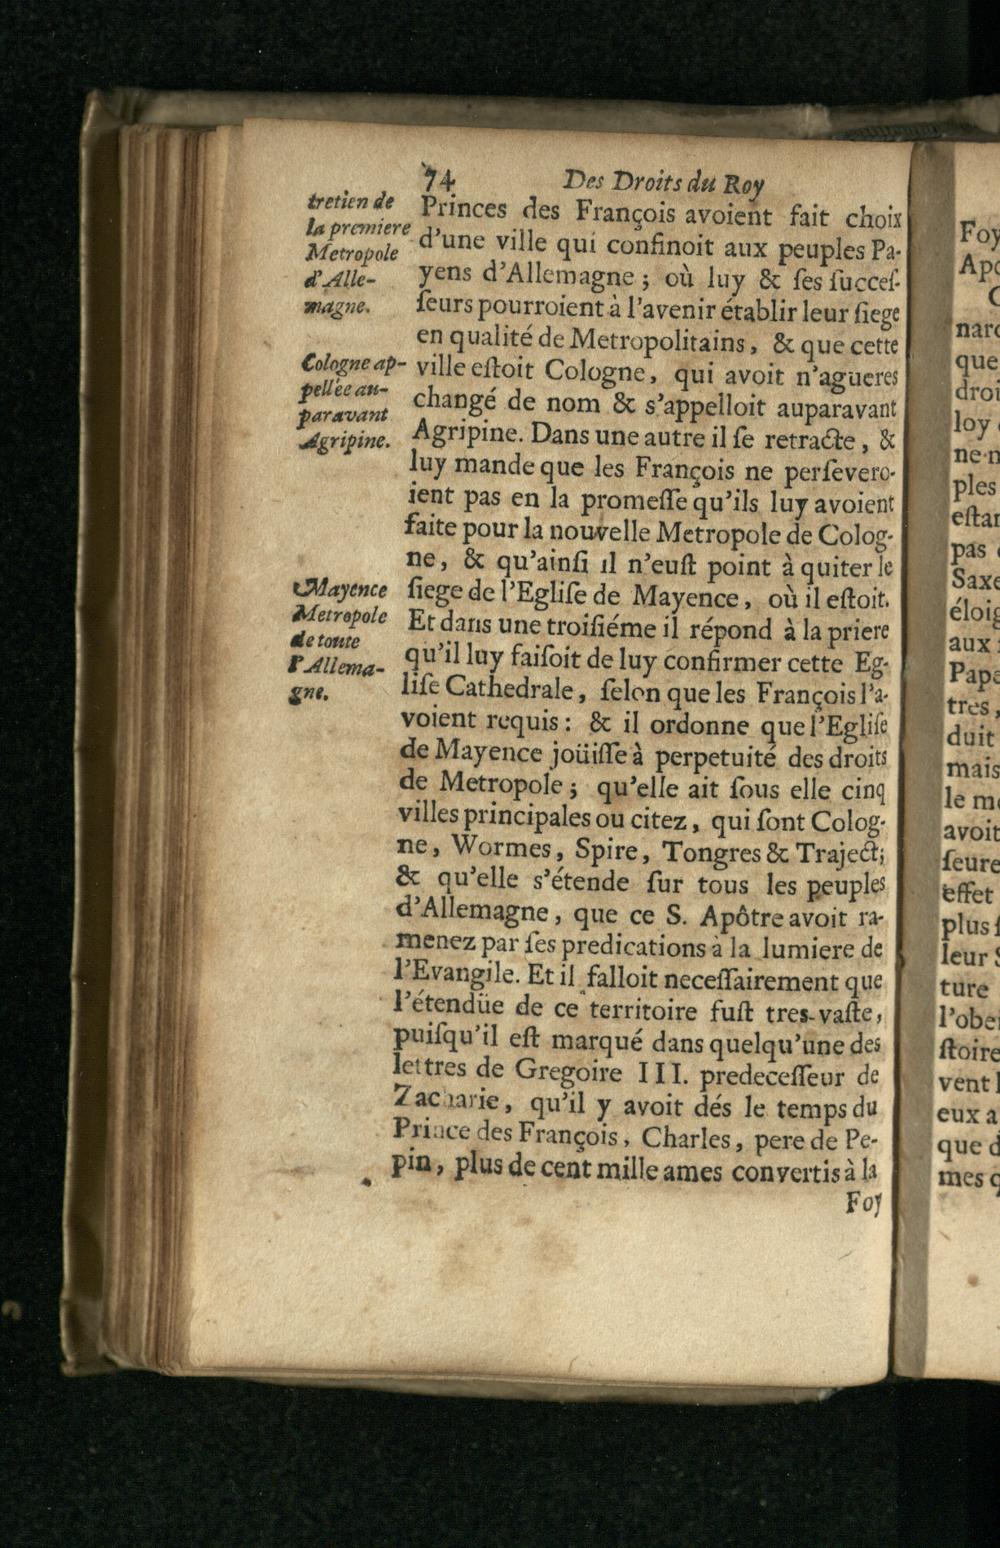 74 Des Droits du Roy
tretien de
la premiere
Metropole
d'Alle-
magne.
Cologne ap-
pellée au-
paravant
Agripine.
Mayence
Metropole
de toute
l'Allema-
gne.
Princes des François avoient fait choix
d'une ville qui confinoit aux peuples Pa-
yens d'Allemagne ; où luy & ſes ſucceſ-
ſeurs pourroient à l'avenir établir leur ſiege
en qualité de Metropolitains, & que cette
ville eſtoit Cologne, qui avoit n'agueres
changé de nom & s'appelloit auparavant
Agripine. Dans une autre il ſe retracte, &
luy mande que les François ne perſevero-
ient pas en la promeſſe qu'ils luy avoient
faite pour la nouvelle Metropole de Colog-
ne, & qu'ainſi il n'euſt point à quiter le
ſiege de l'Egliſe de Mayence, où il eſtoit.
Et dans une troiſiéme il répond à la priere
qu'il luy faiſoit de luy confirmer cette Eg-
liſe Cathedrale, ſelon que les François l'a-
voient requis : & il ordonne que l'Egliſe
de Mayence joüiſſe à perpetuité des droits
de Metropole ; qu'elle ait ſous elle cinq
villes principales ou citez, qui ſont Colog-
ne, Wormes, Spire, Tongres & Traject;
& qu'elle s'étende ſur tous les peuples
d'Allemagne, que ce S. Apôtre avoit ra-
menez par ſes predications à la lumiere de
l'Evangile. Et il falloit neceſſairement que
l'étendüe de ce territoire fuſt tres-vaſte,
puiſqu'il eſt marqué dans quelqu'une des
lettres de Gregoire III. predeceſſeur de
Zacharie, qu'il y avoit dés le temps du
Prince des François, Charles, pere de Pe-
pin, plus de cent mille ames convertis à la
Foy
Foy
que
droi
loy
ples
eſtan
pas
Saxe
éloig
aux
Pape
tres,
duit
mais
le me
avoit
ſeure
effet
plus
leur
ture
l'obei
ſtoire
vent
eux a
que d
mes q